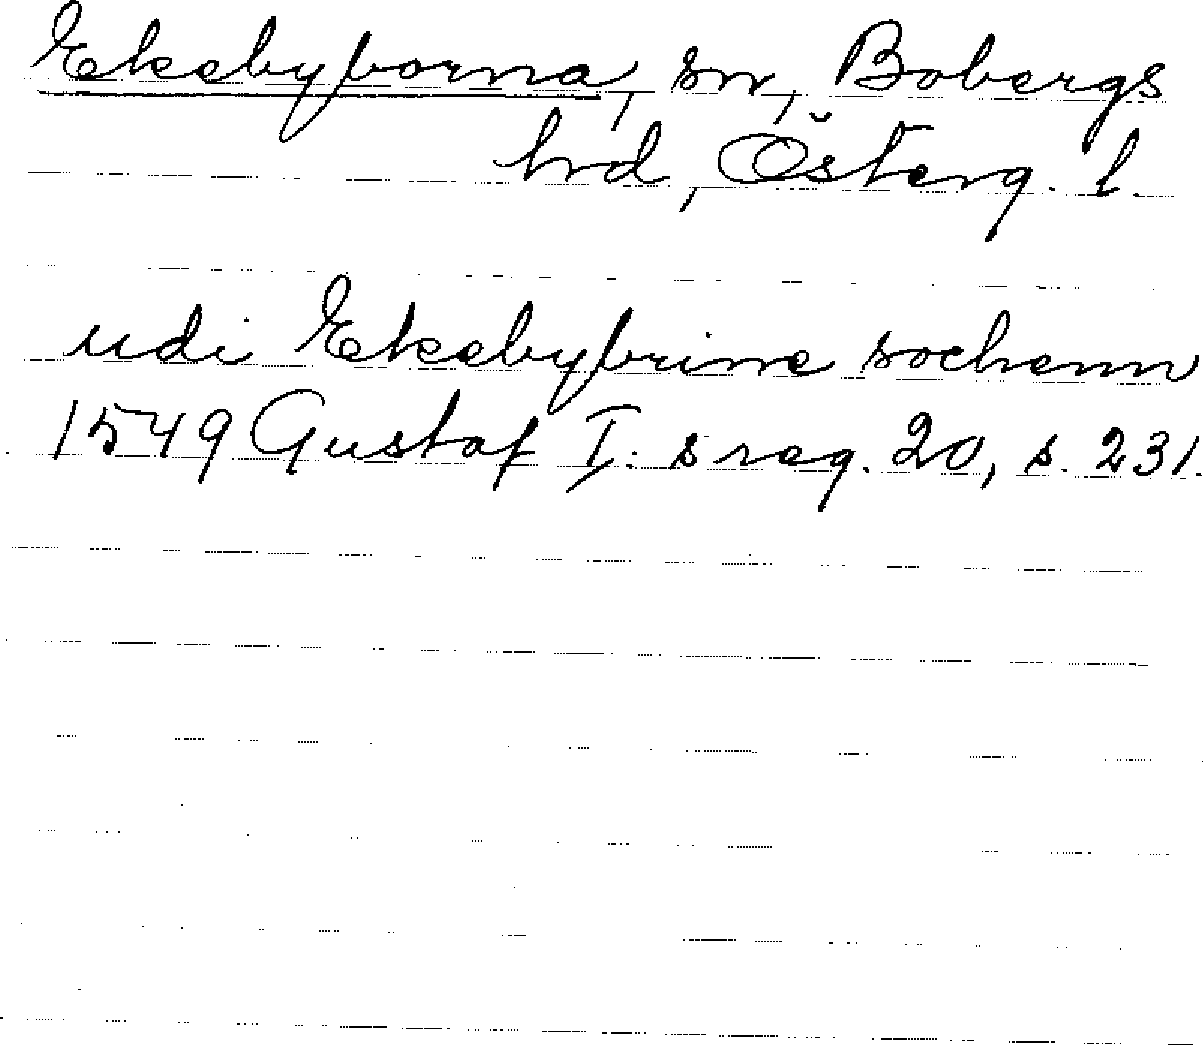 Ekebyborna, sn, Bobergs
hrd, Österg. l.
udi Ekebybrine sochenn
1549 Gustaf I:s reg. 20, s. 231.